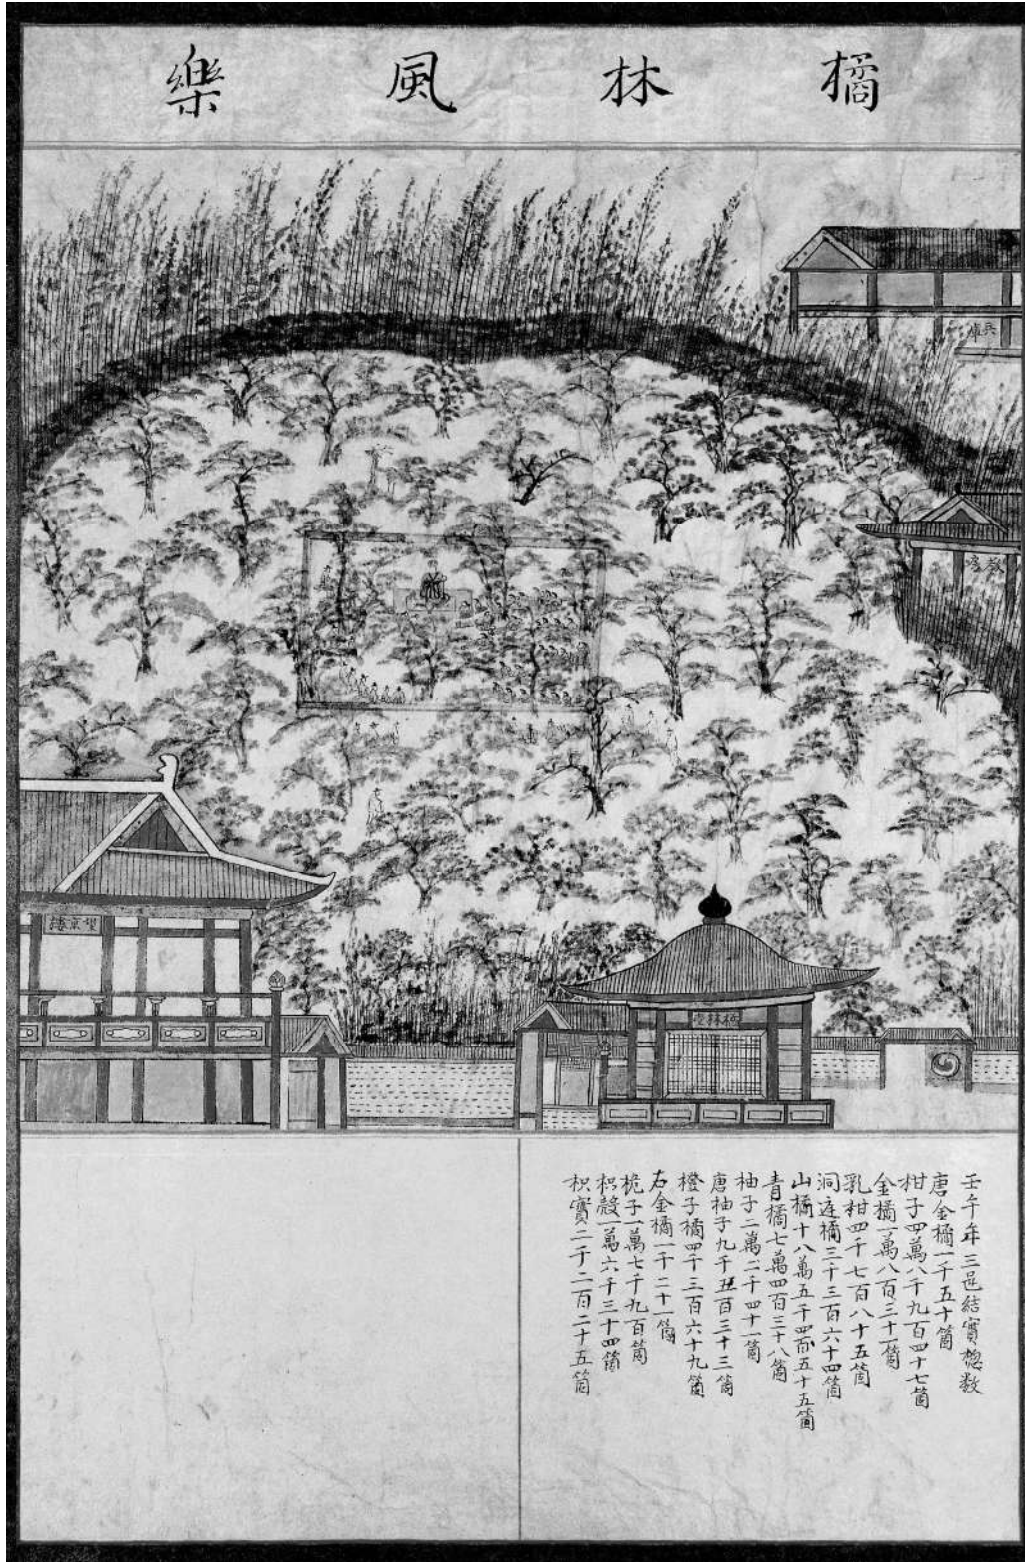 橘林風樂
兵庫
敎房
望京樓
橘林堂
壬午年三邑結實摠数
唐金橘一千五十箇
柑子四萬八千九百四十七箇
金橘一萬八百三十一箇
乳柑四千七百八十五箇
洞庭橘三千三百六十四箇
山橘十八萬五千四百五十五箇
青橘七萬四百三十八箇
柚子二萬二千四十一箇
唐柚子九千五百三十三箇
橙子橘四千三百六十九箇
石金橘一千二十一箇
梔子一萬七千九百箇
枳殼一萬六千三十四箇
枳實二千二百二十五箇